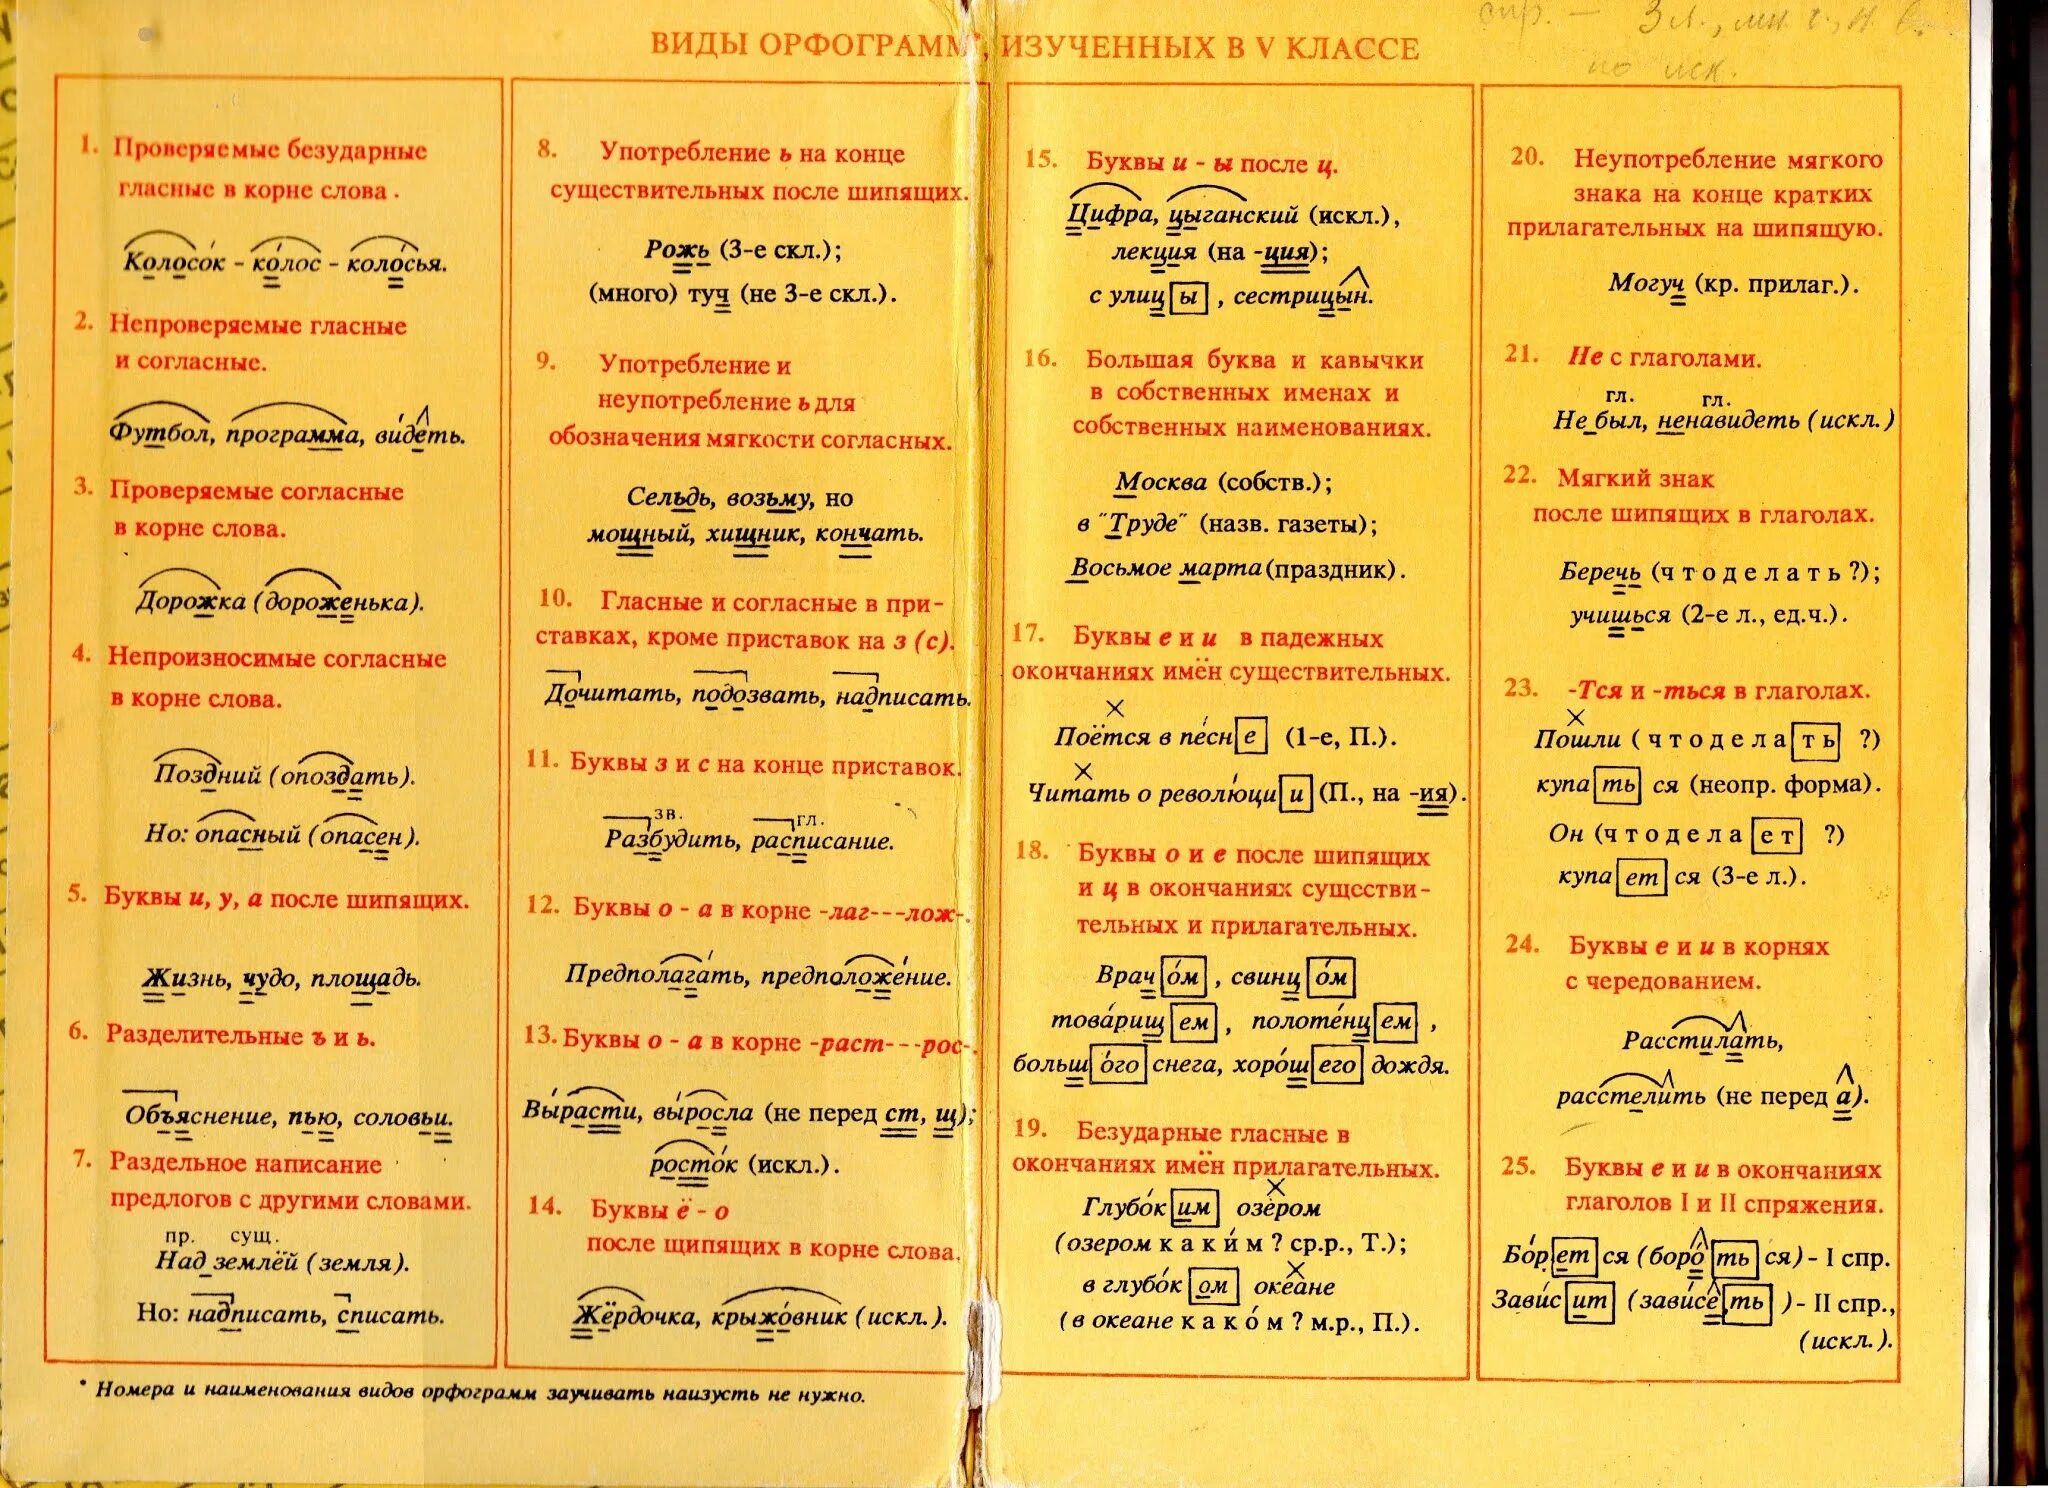 ВИДЫ ОРФОГРАММ*, ИЗУЧЕННЫХ В V КЛАССЕ
спр. – 3 л., мн. ч., н. в.
по иск.
1. Проверяемые безударные
гласные в корне слова.
Колосо́к - ко́лос - коло́сья.
2. Непроверяемые гласные
и согласные.
Футбол, программа, ви́деть.
3. Проверяемые согласные
в корне слова.
Дорожка (дороженька).
4. Непроизносимые согласные
в корне слова.
Поздний (опоздать).
Но: опасный (опасен).
5. Буквы и, у, а после шипящих.
Жизнь, чудо, площадь.
6. Разделительные ъ и ь.
Объяснение, пью, соловьи.
7. Раздельное написание
предлогов с другими словами.
пр. сущ.
Над землёй (земля).
Но: надписать, списать.
8. Употребление ь на конце
существительных после шипящих.
Рожь (3-е скл.);
(много) туч (не 3-е скл.).
9. Употребление и
неупотребление ь для
обозначения мягкости согласных.
Сельдь, возьму, но
мощный, хищник, кончать.
10. Гласные и согласные в при-
ставках, кроме приставок на з (с).
Дочитать, подозвать, надписать.
11. Буквы з и с на конце приставок.
зв. гл.
Разбудить, расписание.
12. Буквы о - а в корне -лаг---лож-.
Предполага́ть, предположе́ние.
13. Буквы о - а в корне -раст---рос-.
Вы́расти, вы́росла (не перед ст, щ);
росто́к (искл.).
14. Буквы ё - о
после щипящих в корне слова.
Жёрдочка, крыжо́вник (искл.).
15. Буквы и - ы после ц.
Цифра, цыганский (искл.),
лекция (на -ция);
с улицы, сестрицын.
16. Большая буква и кавычки
в собственных именах и
собственных наименованиях.
Москва (собств.);
в "Труде" (назв. газеты);
Восьмое марта (праздник).
17. Буквы е и и в падежных
окончаниях имён существительных.
Поётся в пе́сне (1-е, П.).
Читать о револю́ции (П., на -ия).
18. Буквы о и е после шипящих
и ц в окончаниях существи-
тельных и прилагательных.
Врачо́м, свинцо́м
това́рищем, полоте́нцем,
большо́го снега, хоро́шего дождя.
19. Безударные гласные в
окончаниях имён прилагательных.
Глубо́ким озером
(озером каки́м? ср.р., Т.);
в глубо́ком океане
(в океане како́м? м.р., П.).
20. Неупотребление мягкого
знака на конце кратких
прилагательных на шипящую.
Могуч (кр. прилаг.).
21. Не с глаголами.
гл. гл.
Не был, ненавидеть (искл.)
22. Мягкий знак
после шипящих в глаголах.
Беречь (что делать?);
учишься (2-е л., ед.ч.).
23. -Тся и -ться в глаголах.
Пошли (что делать?)
купаться (неопр. форма).
Он (что делает?)
купается (3-е л.).
24. Буквы е и и в корнях
с чередованием.
Расстилать,
расстелить (не перед а).
25. Буквы е и и в окончаниях
глаголов I и II спряжения.
Бо́рется (боро́ться) - I спр.
Зави́сит (зави́сеть) - II спр.,
(искл.).
* Номера и наименования видов орфограмм заучивать наизусть не нужно.